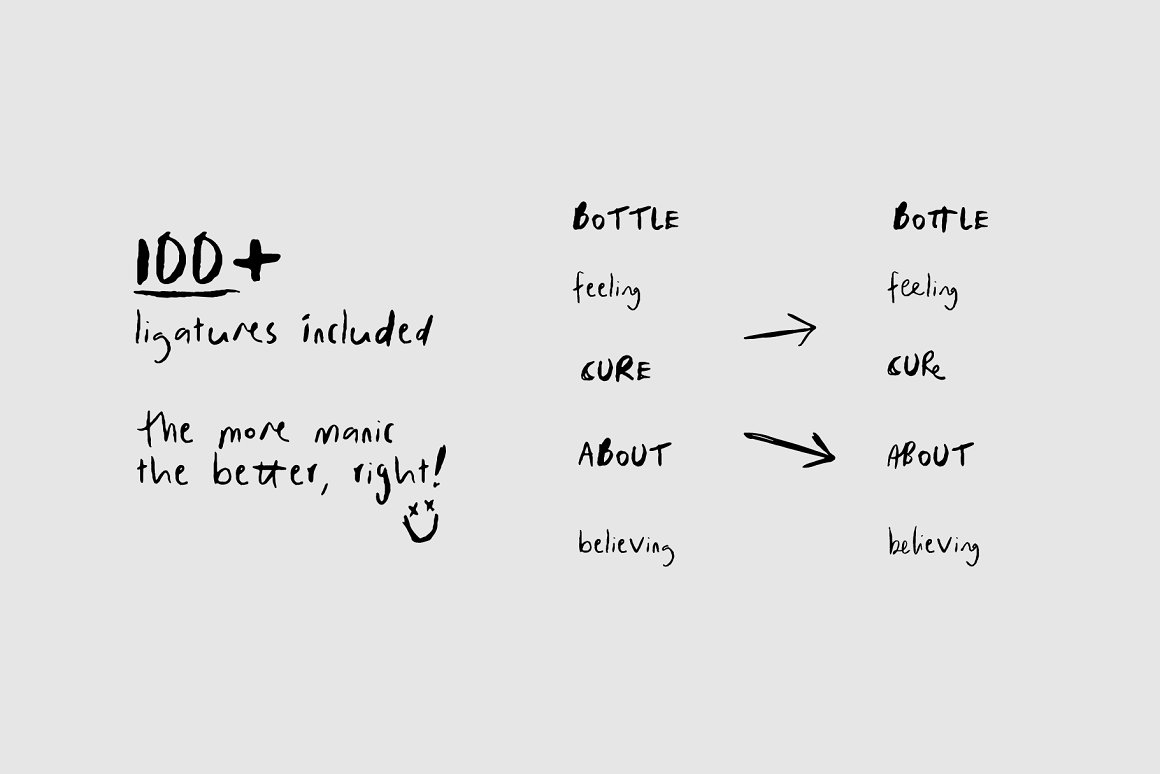 100+
ligatures included
the more manic
the better, right!
BoTTLE
feeling
CURE
ABOUT
believing
BoTTLE
feeling
CURe
ABOUT
believing